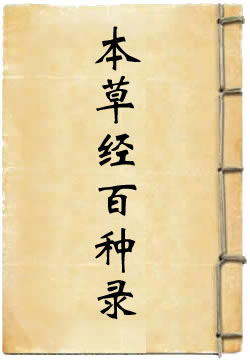 本草经百种录